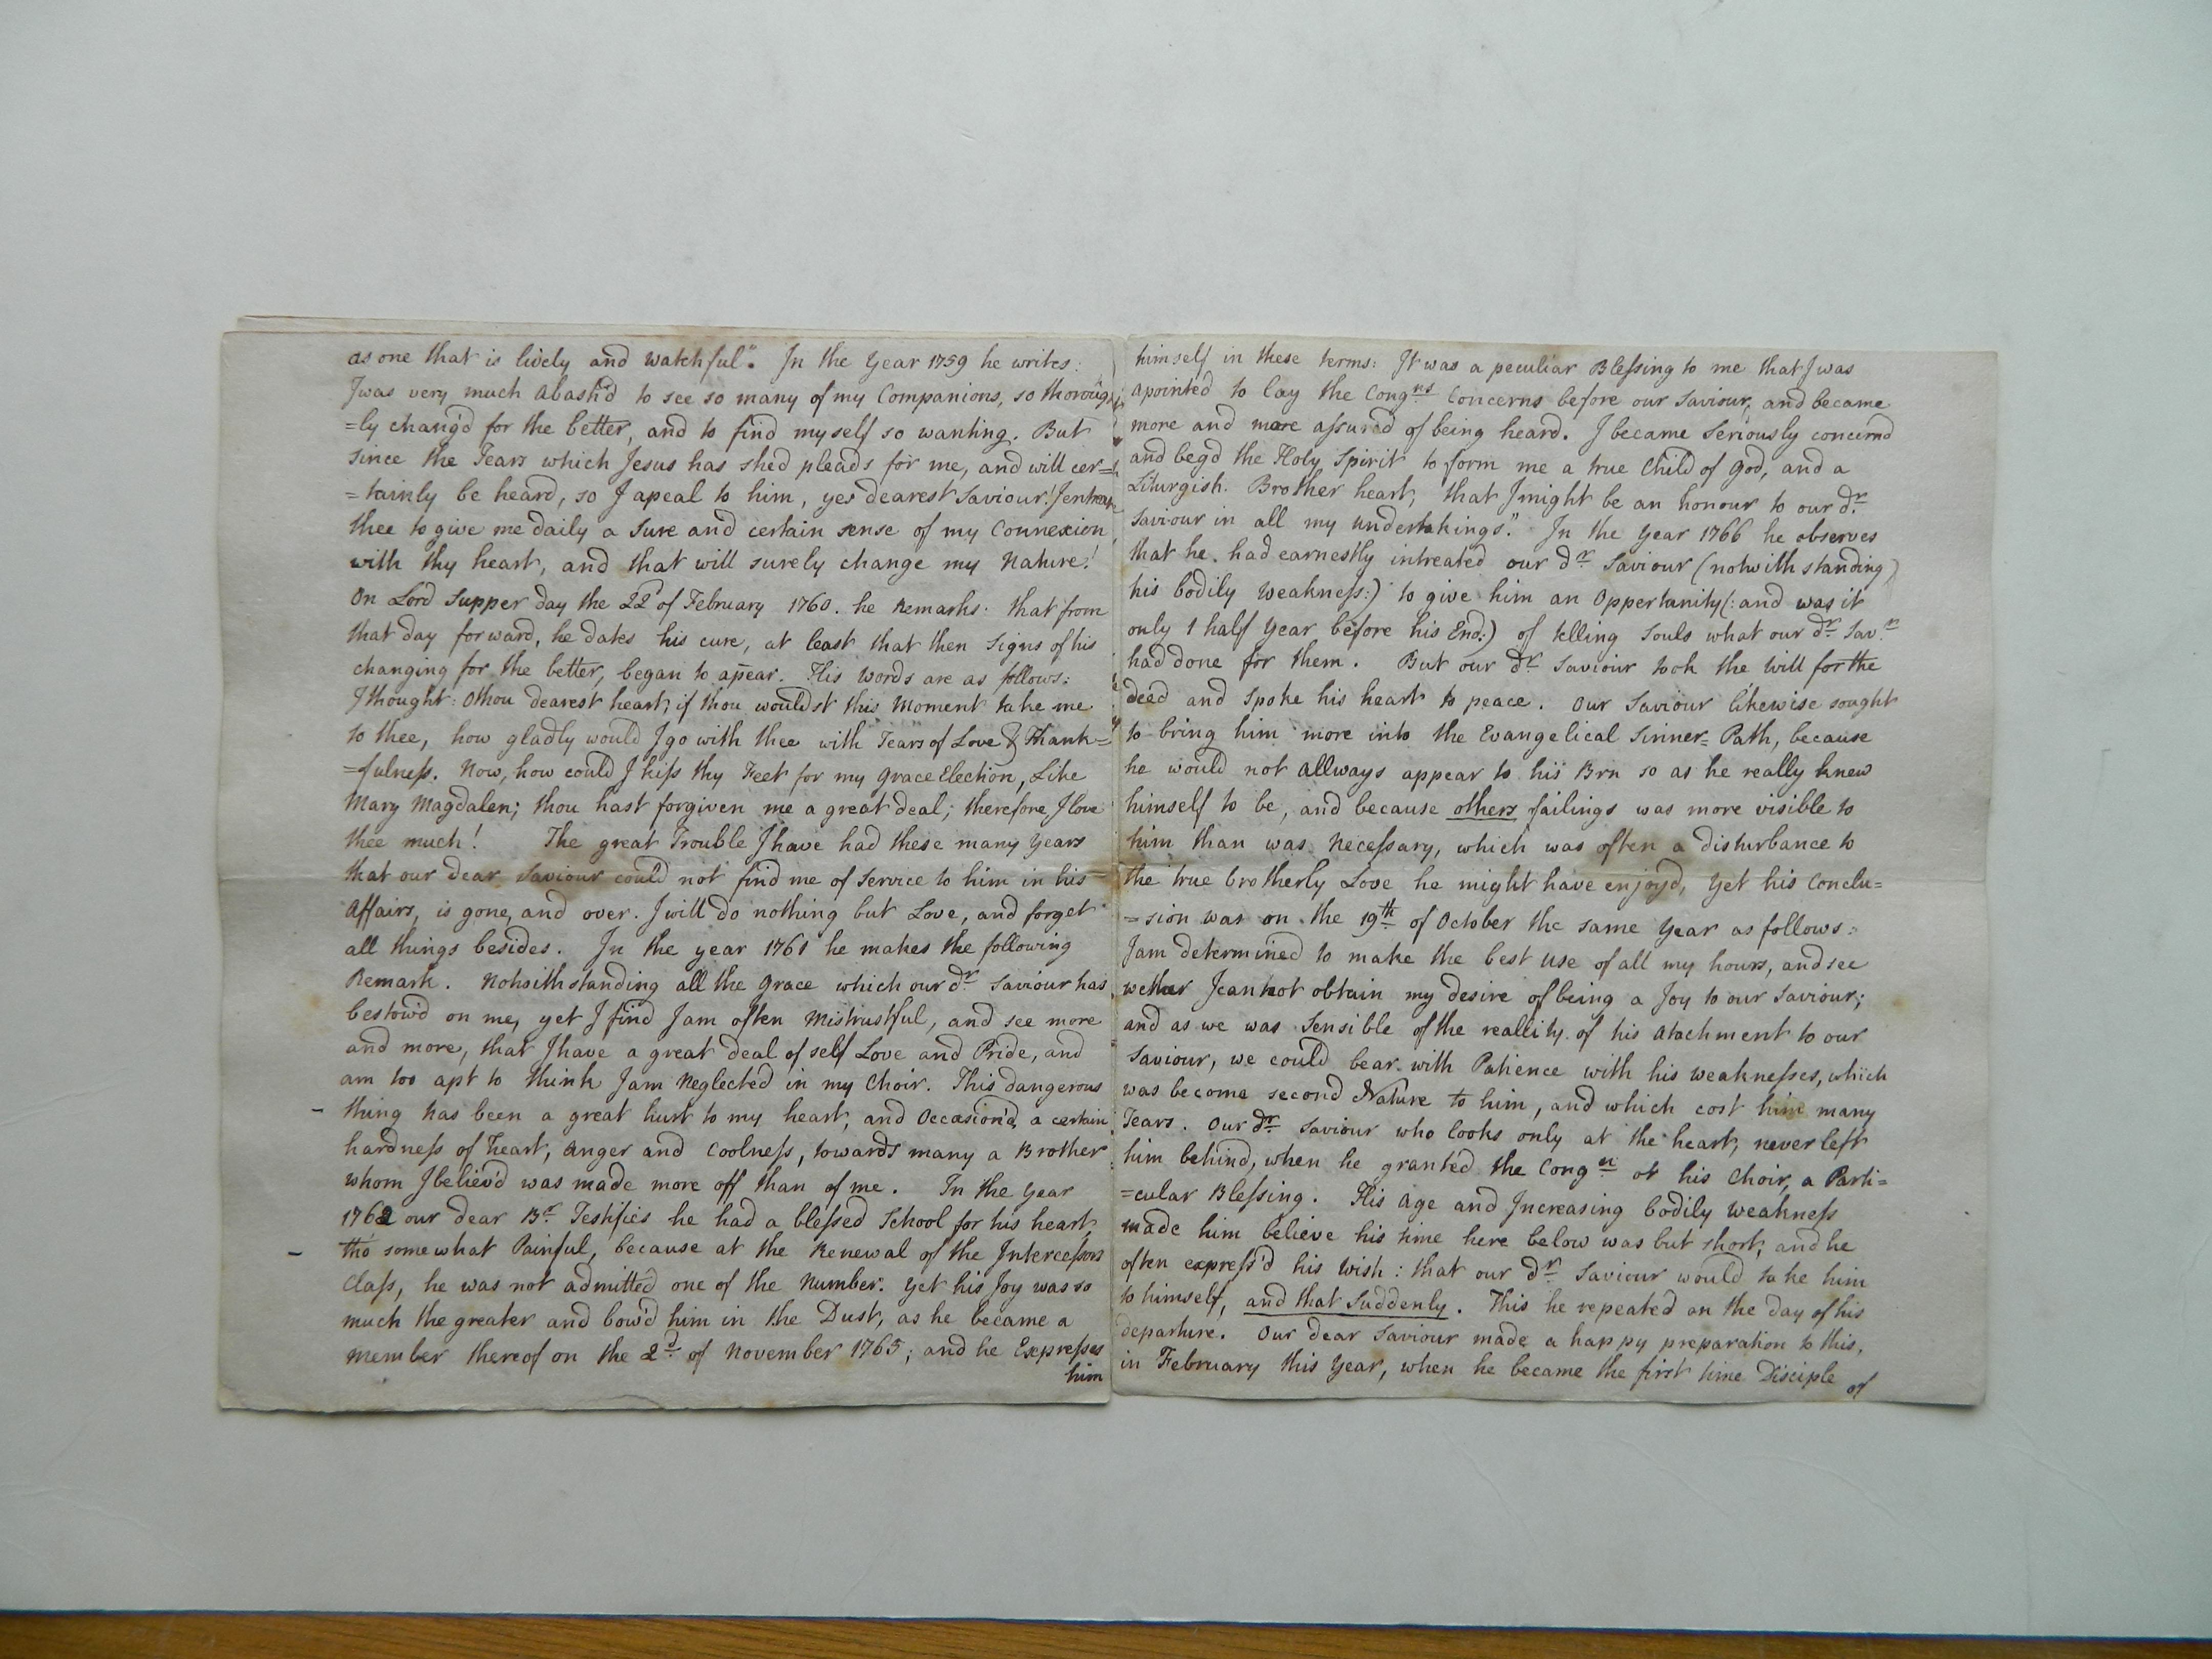 as one that is lively and watchful". In the Year 1759 he writes:
I was very much Abash'd to see so many of my Companions, so thorough
=ly chang'd for the better, and to find myself so wanting. But
since the Tears which Jesus has shed pleads for me, and will cer=
=tainly be heard, so I apeal to him, yes dearest Saviour! I entreat
thee to give me daily a sure and certain sense of my Connexion
with thy heart, and that will surely change my Nature!
On Lord Supper day the 22d of February 1760. he Remarks: that from
that day forward, he dates his cure, at least that then signs of his
changing for the better, began to apear. His words are as follows:
I thought: O thou dearest heart, if thou wouldst this Moment take me
to thee, how gladly would I go with thee with Tears of Love & Thank=
=fulneſs. Now, how could I kiſs thy Feet for my Grace Election, Like
Mary Magdalen; thou hast forgiven me a great deal; therefore, I love
thee much! The great Trouble I have had these many Years
that our dear Saviour could not find me of Service to him in his
Affairs, is gone, and over. I will do nothing but Love, and forget
all things besides. In the year 1761 he makes the following
Remark. Nohsithstanding all the Grace which our dr. Saviour has
bestow'd on me, yet I find I am often Mistrustful, and see more
and more, that I have a great deal of self Love and Pride, and
am too apt to think I am Neglected in my Choir. This dangerous
thing has been a great hurt to my heart, and Occasion'd a certain
hardneſs of heart, Anger and Coolneſs, towards many a Brother
whom I believ'd was made more off than of me. In the Year
1762 our dear Br. Testifies he had a bleſsed School for his heart
tho' somewhat Painful, because at the Renewal of the Interceſsors
Claſs, he was not admitted one of the Number. Yet his Joy was so
much the greater and bow'd him in the Dust, as he became a
Member thereof on the 2d. of November 1765; and he Expreſses
him
himself in these terms: It was a peculiar Bleſsing to me that I was
apointed to lay the Congns. Concerns before our Saviour, and became
more and more aſsured of being heard. I became Seriously concernd
and beg'd the Holy Spirit to form me a true Child of God, and a
Liturgish. Brother heart, that I might be an honour to our dr.
Saviour in all my undertakings". In the Year 1766 he observes
that he had earnestly intreated our dr. Saviour (notwithstanding
his bodily Weakneſs:) to give him an Oppertunity (: and was it
only 1 half Year before his End:) of telling Souls what our dr. Savr.
had done for them. But our dr. Saviour took the Will for the
deed and Spoke his heart to peace. Our Saviour likewise sought
to bring him more into the Evangelical Sinner=Path, because
he would not allways appear to his Brn so as he really knew
himself to be, and because others failings was more visible to
him than was Neceſsary, which was often a disturbance to
the true brotherly Love he might have enjoy'd, Yet his Conclu=
=sion was on the 19th. of October the same Year as follows:
I am determined to make the best Use of all my hours, and see
wether I can not obtain my desire of being a Joy to our Saviour;
and as we was Sensible of the reallity of his Atachment to our
Saviour, we could bear with Patience with his weakneſses, which
was become second Nature to him, and which cost him many
Tears. Our dr. Saviour who looks only at the heart, never left
him behind, when he granted the Congn. or his Choir, a Parti=
=cular Bleſsing. His Age and Increasing bodily weakneſs
made him believe his time here below was but short, and he
often expreſs'd his Wish: that our dr. Saviour would take him
to himself, and that Suddenly. This he repeated on the day of his
departure. Our dear Saviour made a happy preparation to this,
in February this Year, when he became the first time Disciple
of